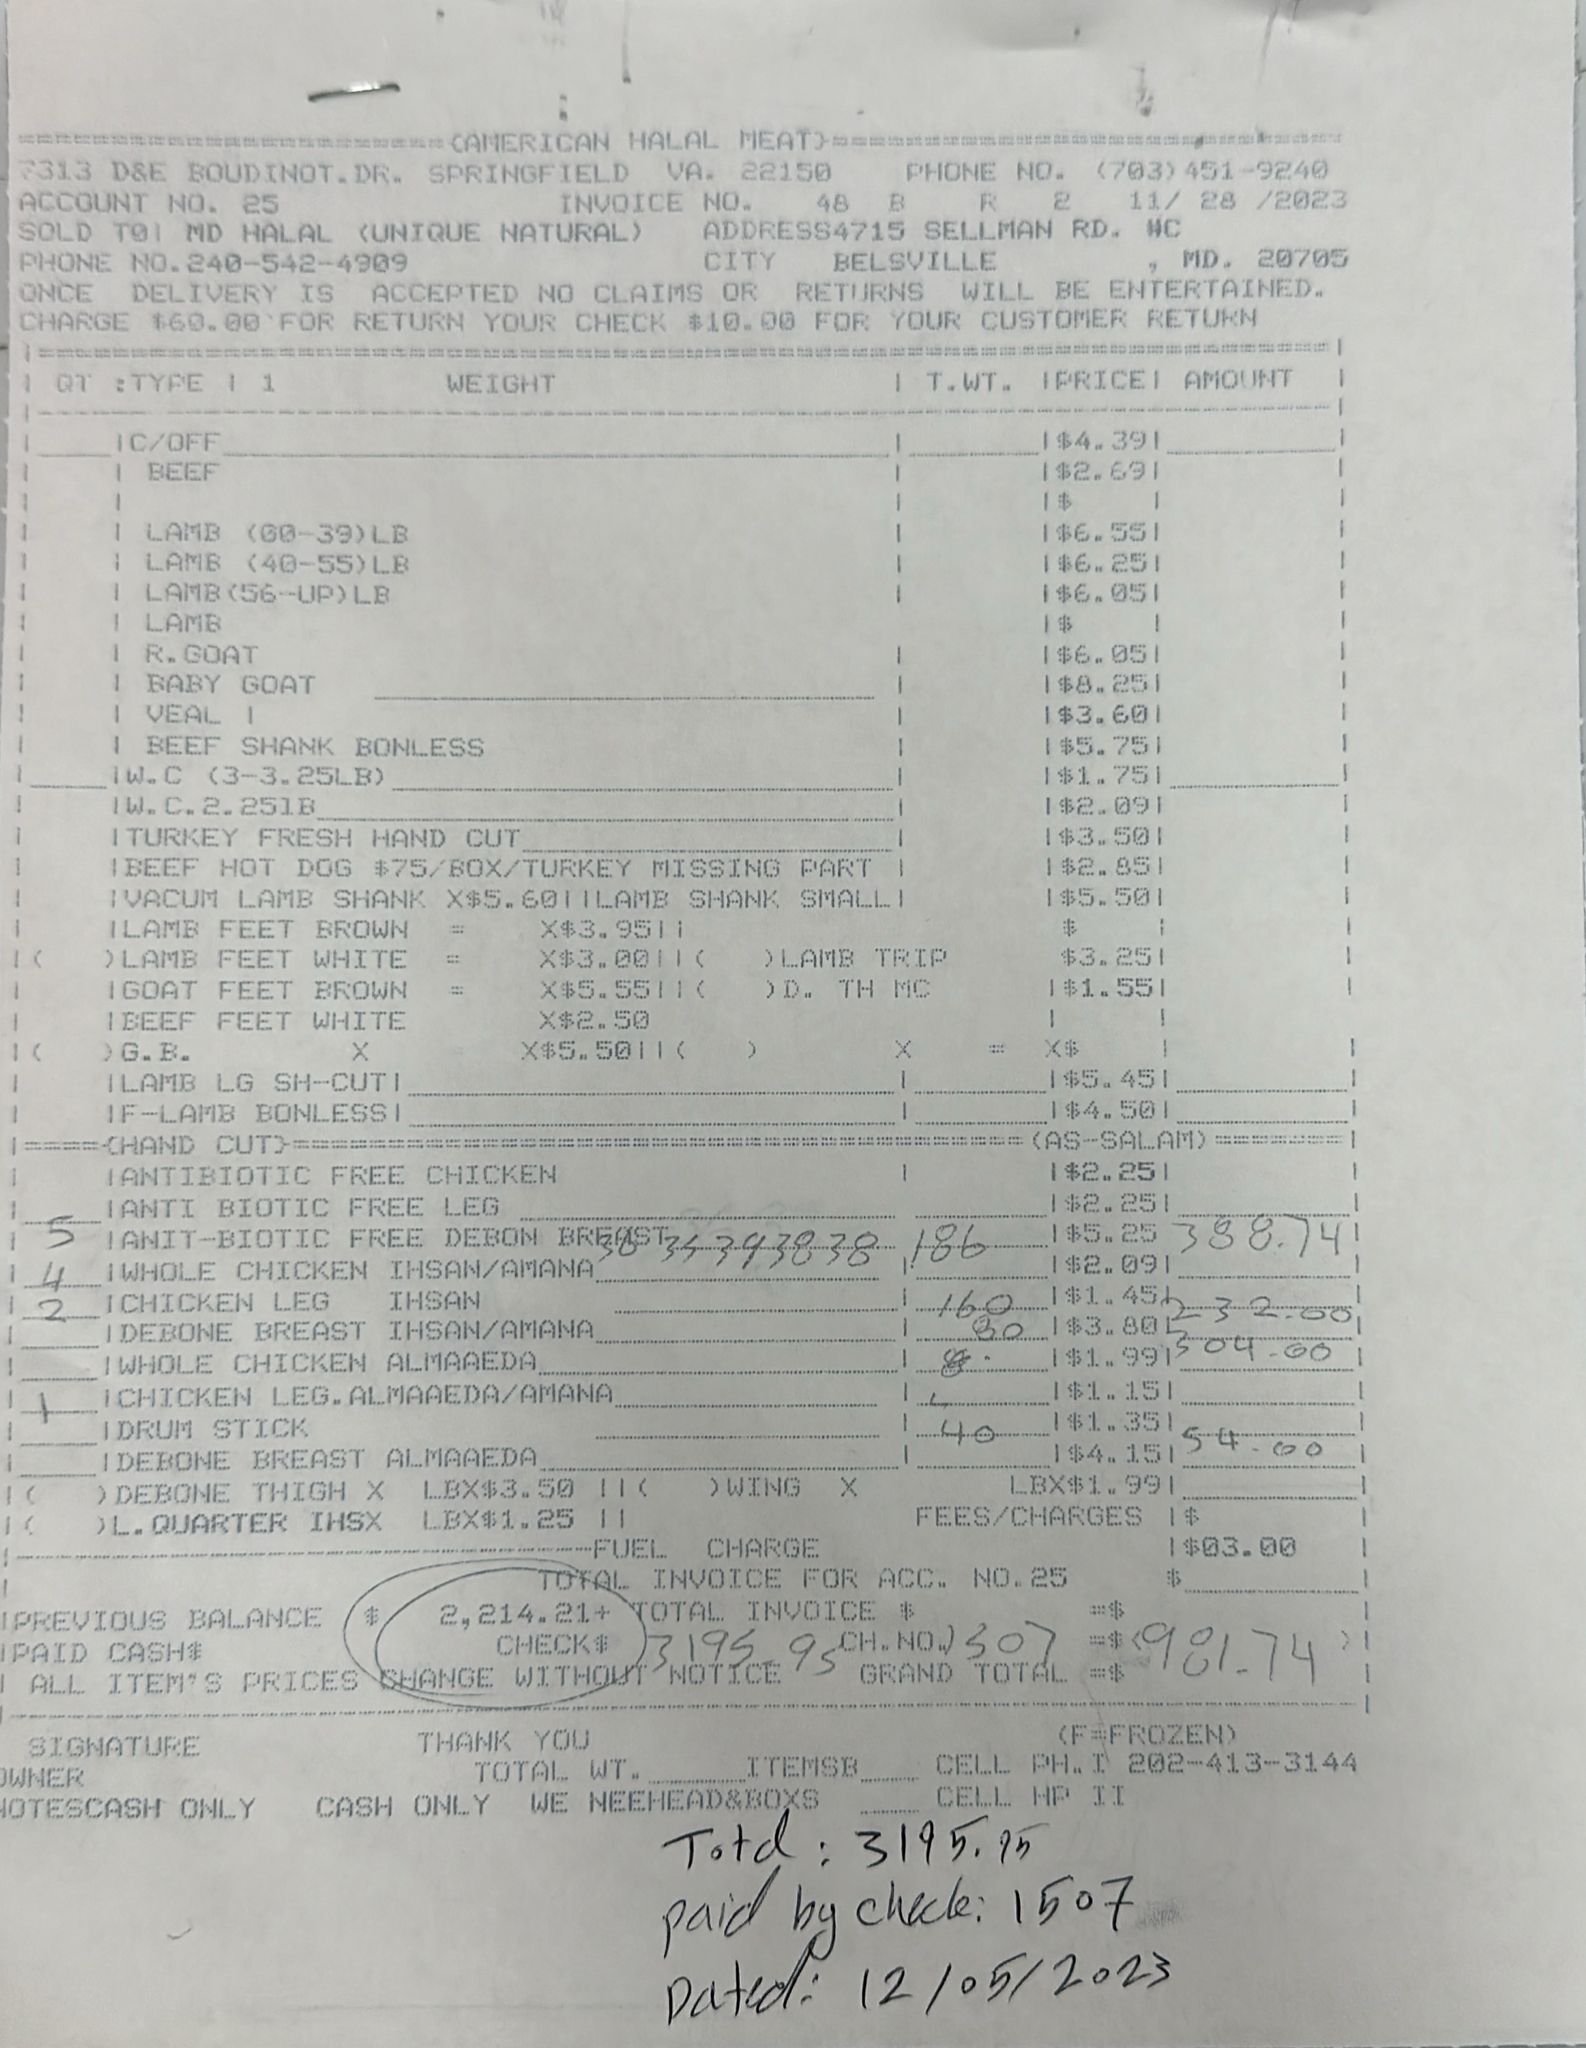 (AMERICAN HALAL MEAT)
7313 D&E BOUDINOT.DR. SPRINGFIELD VA. 22150 PHONE NO. (703)451-9240
ACCOUNT NO. 25 INVOICE NO. 48 B R 2 11/ 28 /2023
SOLD TO| MD HALAL (UNIQUE NATURAL) ADDRESS4715 SELLMAN RD. #C
PHONE NO.240-542-4909 CITY BELSVILLE , MD. 20705
ONCE DELIVERY IS ACCEPTED NO CLAIMS OR RETURNS WILL BE ENTERTAINED.
CHARGE $60.00 FOR RETURN YOUR CHECK $10.00 FOR YOUR CUSTOMER RETURN
| QT :TYPE | 1 WEIGHT | T.WT. |PRICE| AMOUNT |
|C/OFF | |$4.39|
| BEEF |$2.69|
| |$ |
| LAMB (00-39)LB |$6.55|
| LAMB (40-55)LB |$6.25|
| LAMB(56-UP)LB |$6.05|
| LAMB |$ |
| R.GOAT |$6.05|
| BABY GOAT |$8.25|
| VEAL | |$3.60|
| BEEF SHANK BONLESS |$5.75|
|W.C (3-3.25LB) |$1.75|
|W.C.2.25lB |$2.09|
|TURKEY FRESH HAND CUT |$3.50|
|BEEF HOT DOG $75/BOX/TURKEY MISSING PART | |$2.85|
|VACUM LAMB SHANK X$5.60||LAMB SHANK SMALL| |$5.50|
|LAMB FEET BROWN = X$3.95|| $ |
|( )LAMB FEET WHITE = X$3.00||( )LAMB TRIP $3.25|
|GOAT FEET BROWN = X$5.55||( )D. TH MC |$1.55|
|BEEF FEET WHITE X$2.50 | |
|( )G.B. X X$5.50||( ) X = X$ |
|LAMB LG SH-CUT| |$5.45|
|F-LAMB BONLESS| |$4.50|
|====(HAND CUT)====(AS-SALAM)====|
|ANTIBIOTIC FREE CHICKEN | |$2.25|
|ANTI BIOTIC FREE LEG |$2.25|
5 |ANIT-BIOTIC FREE DEBON BREAST 186 |$5.25 388.74
4 |WHOLE CHICKEN IHSAN/AMANA |$2.09|
2 |CHICKEN LEG IHSAN 160 |$1.45| 232.00
|DEBONE BREAST IHSAN/AMANA 80 |$3.80| 304.00
|WHOLE CHICKEN ALMAAEDA |$1.99|
1 |CHICKEN LEG.ALMAAEDA/AMANA |$1.15|
|DRUM STICK 40 |$1.35| 54.00
|DEBONE BREAST ALMAAEDA |$4.15|
|( )DEBONE THIGH X LBX$3.50 ||( )WING X LBX$1.99|
|( )L.QUARTER IHSX LBX$1.25 || FEES/CHARGES |$
FUEL CHARGE |$03.00 |
TOTAL INVOICE FOR ACC. NO.25 $
|PREVIOUS BALANCE $ 2,214.21+ TOTAL INVOICE $ =$
|PAID CASH$ CHECK$ 3195.95 CH.NO.1507 =$(981.74)
| ALL ITEM'S PRICES CHANGE WITHOUT NOTICE GRAND TOTAL =$
SIGNATURE THANK YOU (F=FROZEN)
OWNER TOTAL WT. ITEMSB CELL PH.I 202-413-3144
NOTESCASH ONLY CASH ONLY WE NEEHEAD&BOXS CELL HP II
Total: 3195.95
paid by check: 1507
Dated: 12/05/2023